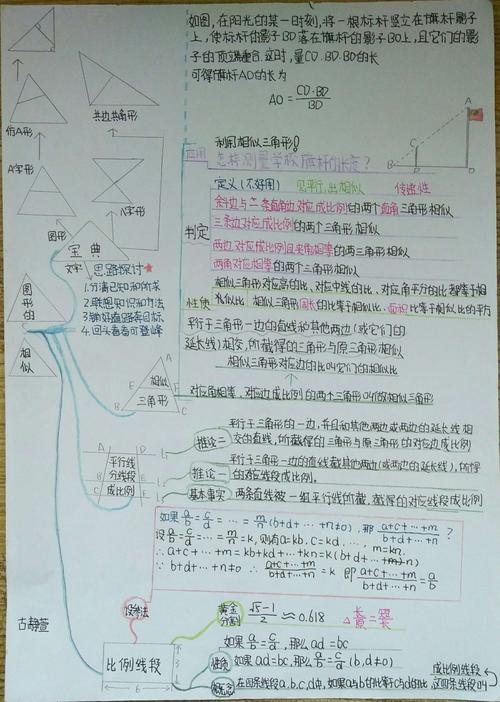 如图,在阳光的某一时刻,将一根标杆竖立在旗杆影子
上,使标杆的影子BD落在旗杆的影子BO上,且它们的影
子的顶端重合.这时,量CD·BD·BO的长
可得旗杆AO的长为
AO = CD·BD / BD
利用相似三角形!
应用 怎样测量学校旗杆的长度?
A
C
B
D
O
共边共角形
仿A形
A字形
八字形
图形
宝典
文字
思路探讨★
1.分清已知和所求
2.联想知识和方法
3.铺好道路奔目标
4.回头看看可登峰
图形的
相似
判定
定义(不好用) 见平行,出相似 传递性
斜边与一条直角边对应成比例的两个直角三角形相似
三条边对应成比例的两个三角形相似
两边对应成比例且夹角相等的两三角形相似
两角对应相等的两个三角形相似
性质
相似三角形对应高的比,对应中线的比,对应角平分的比都等于相似比
相似三角形周长的比等于相似比,面积比等于相似比的平方
平行于三角形一边的直线和其他两边(或它们的
延长线)相交,所截得的三角形与原三角形相似
相似三角形对应边的比叫它们的相似比
对应角相等,对应边成比例的两个三角形叫做相似三角形
A
E
F
B
C
相似
三角形
推论二
平行于三角形的一边,并且和其他两边或两边的延长线相
交的直线,所截得的三角形与原三角形的对应边成比例
推论一
平行于三角形一边的直线截其他两边(或两边的延长线),所得
的对应线段成比例.
基本事实 两条直线被一组平行线所截,截得的对应线段成比例
A D
B E
C F
平行线
分线段
成比例
如果a/b = c/d = … = m/n (b+d+…+n≠0),那 a+c+…+m / b+d+…+n = a/b ?
设a/b = c/d = … = m/n = k,则有a=kb,c=kd…,m=kn.
∴a+c+…+m=kb+kd+…+kn=k(b+d+…+n)
∵b+d+…+n≠0 ∴ a+c+…+m / b+d+…+n = k 即 a+c+…+m / b+d+…+n = a/b
设参法
古静萱
黄金分割 √5-1 / 2 ≈0.618
比例线段
6
3
如果a/b = c/d,那么ad=bc
性质 如果ad=bc,那么a/b = c/d (b,d≠0)
概念 在四条线段a.b.c.d中,如果a与b的比等于c与d的比,这四条线段叫
成比例线段